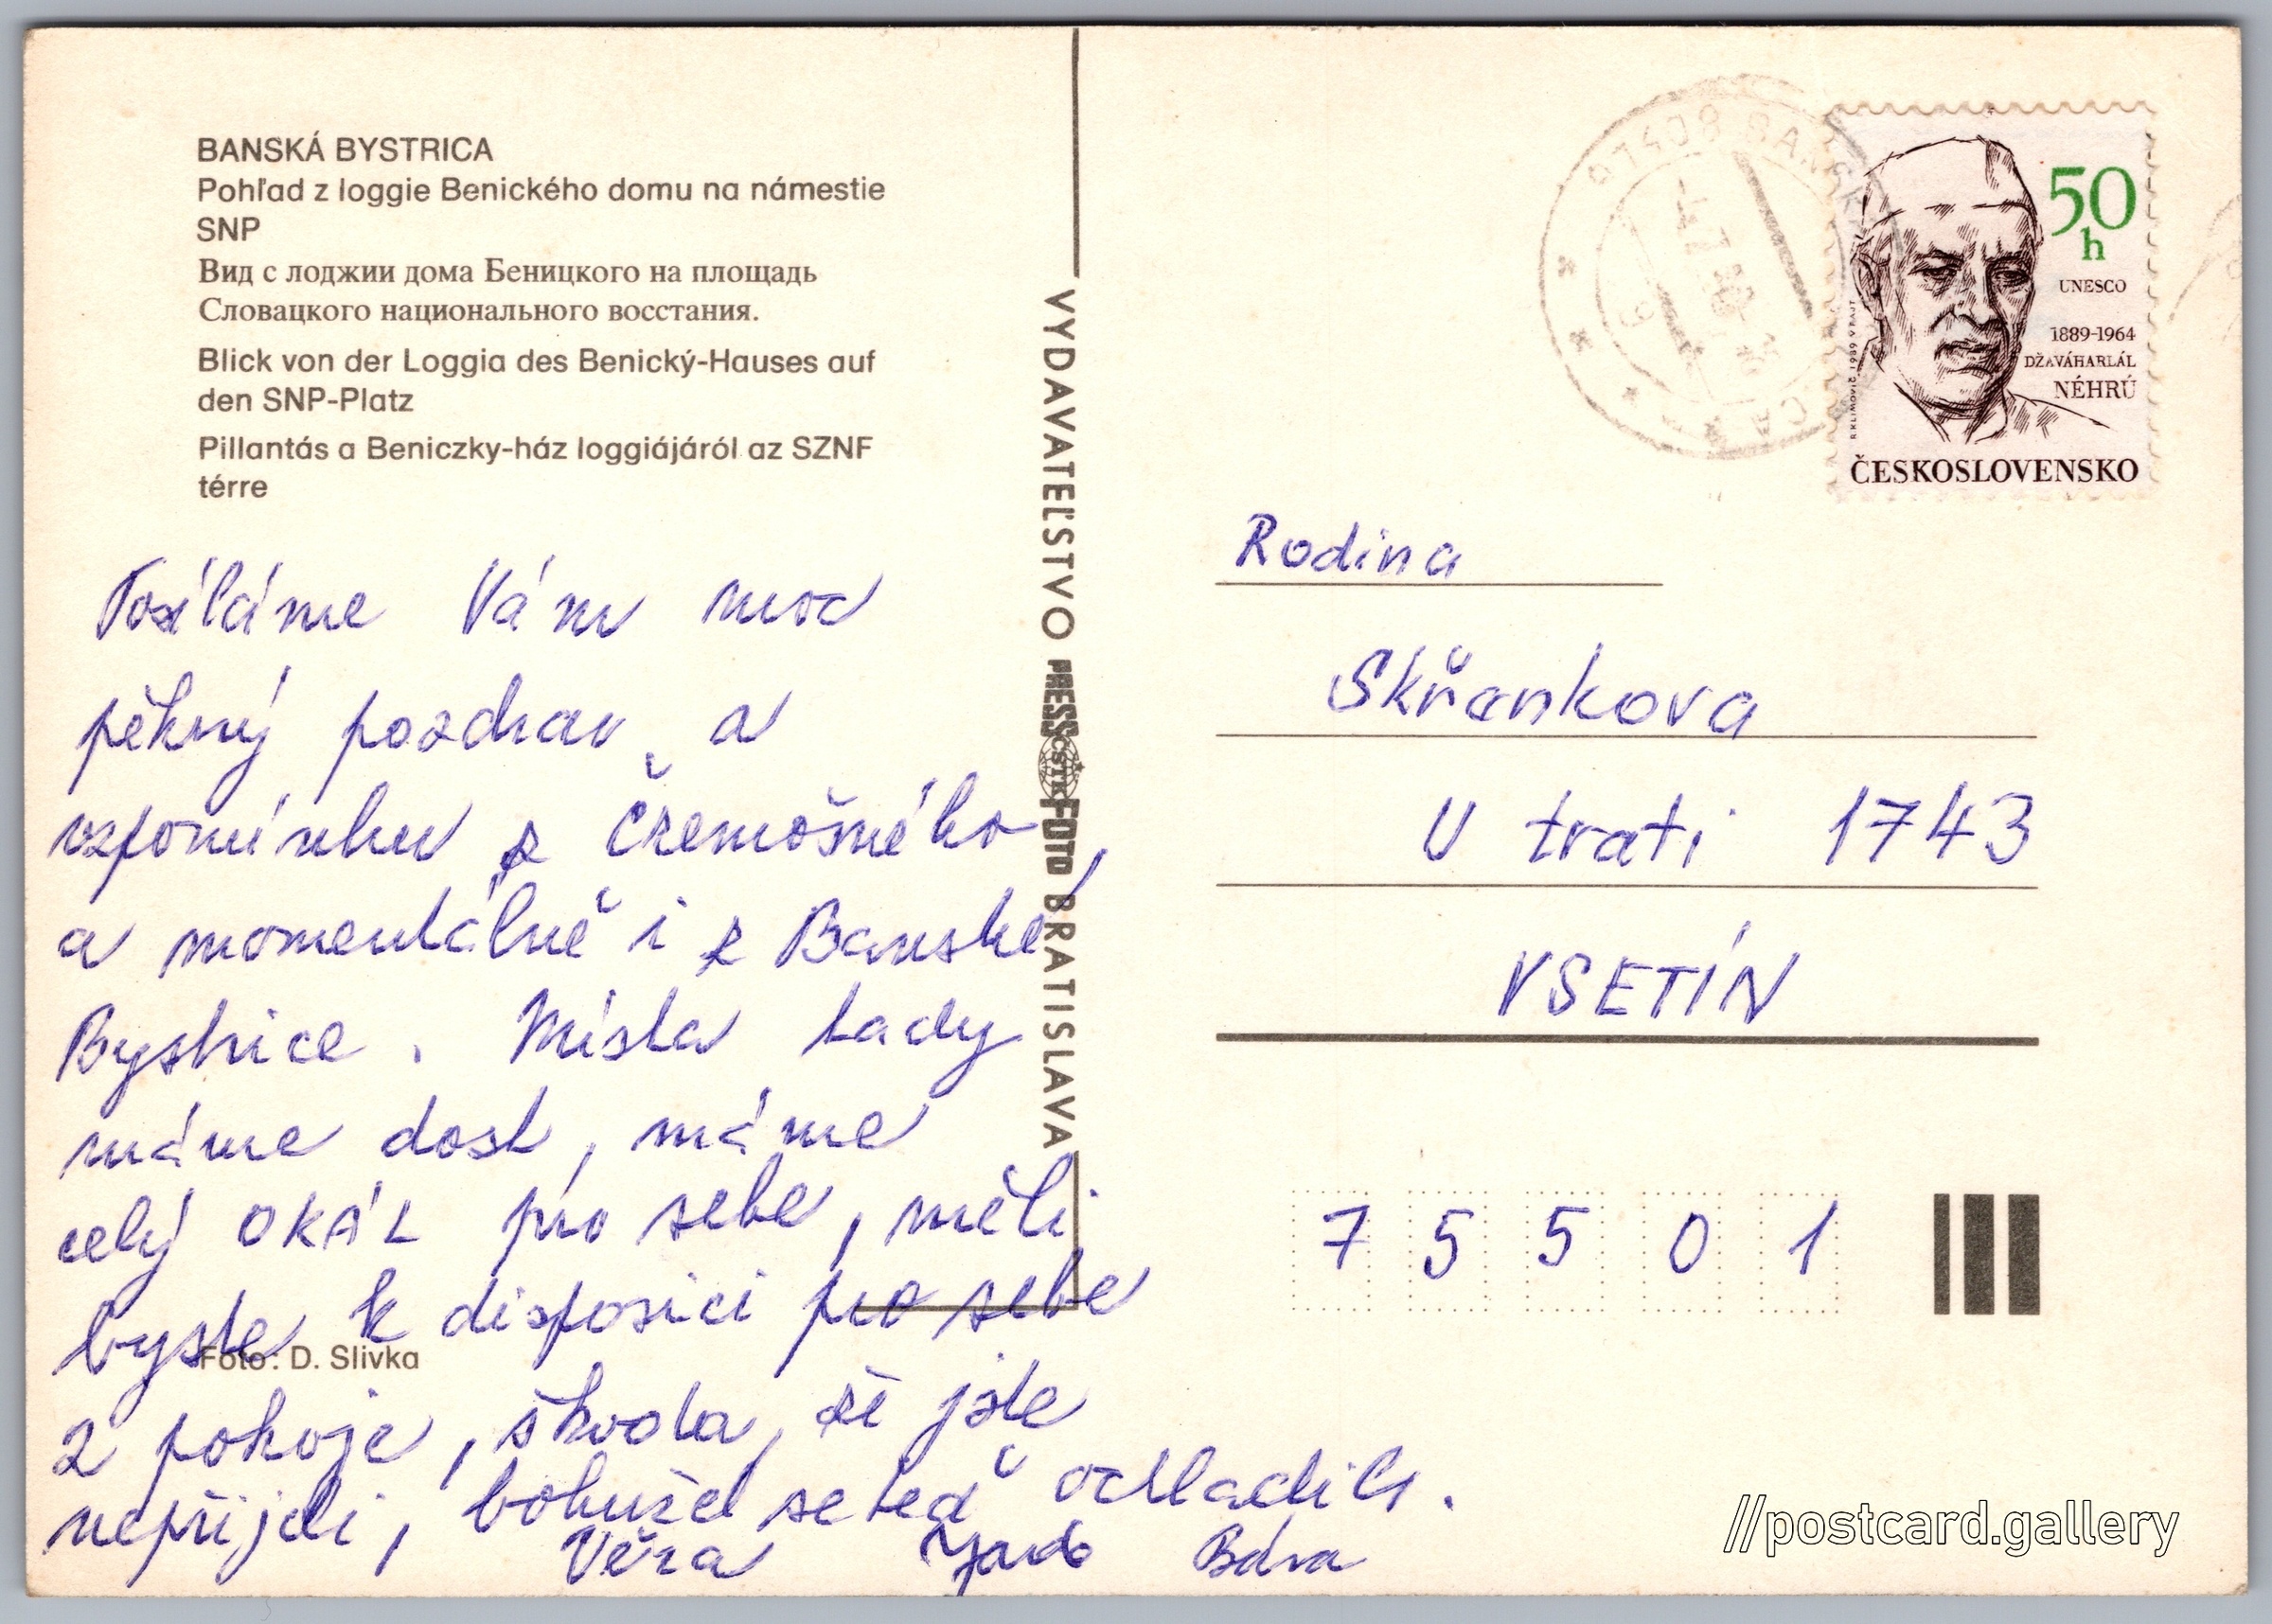 BANSKÁ BYSTRICA
Pohľad z loggie Benického domu na námestie
SNP
Вид с лоджии дома Беницкого на площадь
Словацкого национального восстания.
Blick von der Loggia des Benický-Hauses auf
den SNP-Platz
Pillantás a Beniczky-ház loggiájáról az SZNF
térre
Posíláme Vám moc
pěkný pozdrav a
vzpomínku z Čremošného,
a momentálně i z Banské
Bystrice. Místa tady
máme dost, máme
celý OKÁL pro sebe, měli
byste k disposici pro sebe
2 pokoje, škoda, že jste
nepřijeli, bohužel se teď ochladilo.
Věra
Foto: D. Slivka
VYDAVATEĽSTVO PRESSFOTO BRATISLAVA
ČSTK
50
h
UNESCO
1889-1964
DŽAVÁHARLÁL
NÉHRÚ
ČESKOSLOVENSKO
Rodina
Skřankova
U trati 1743
VSETÍN
7 5 5 0 1
//postcard.gallery